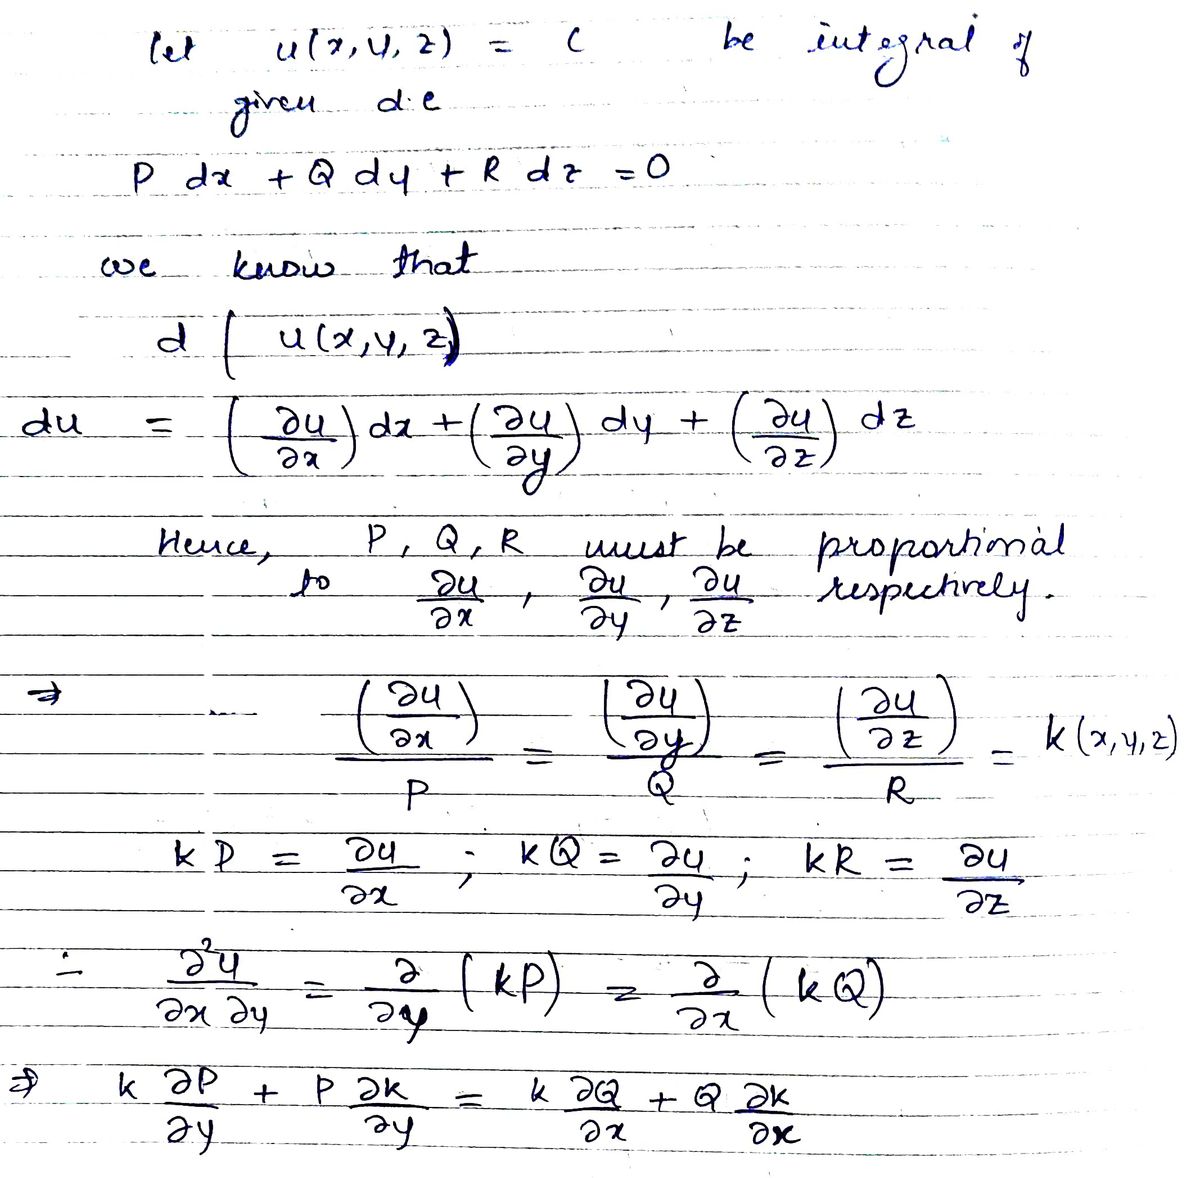 let u(x, y, z) = c be integral of
given d.e
P dx + Q dy + R dz = 0
we know that
d ( u(x, y, z)
du = (∂u/∂x) dx + (∂u/∂y) dy + (∂u/∂z) dz
Hence, P, Q, R must be proportional
to ∂u/∂x , ∂u/∂y , ∂u/∂z respectively.
⇒ (∂u/∂x)/P = (∂u/∂y)/Q = (∂u/∂z)/R = k(x,y,z)
kP = ∂u/∂x ; kQ = ∂u/∂y ; kR = ∂u/∂z
∴ ∂²u/∂x ∂y = ∂/∂y (kP) = ∂/∂x (kQ)
⇒ k ∂P/∂y + P ∂k/∂y = k ∂Q/∂x + Q ∂k/∂x